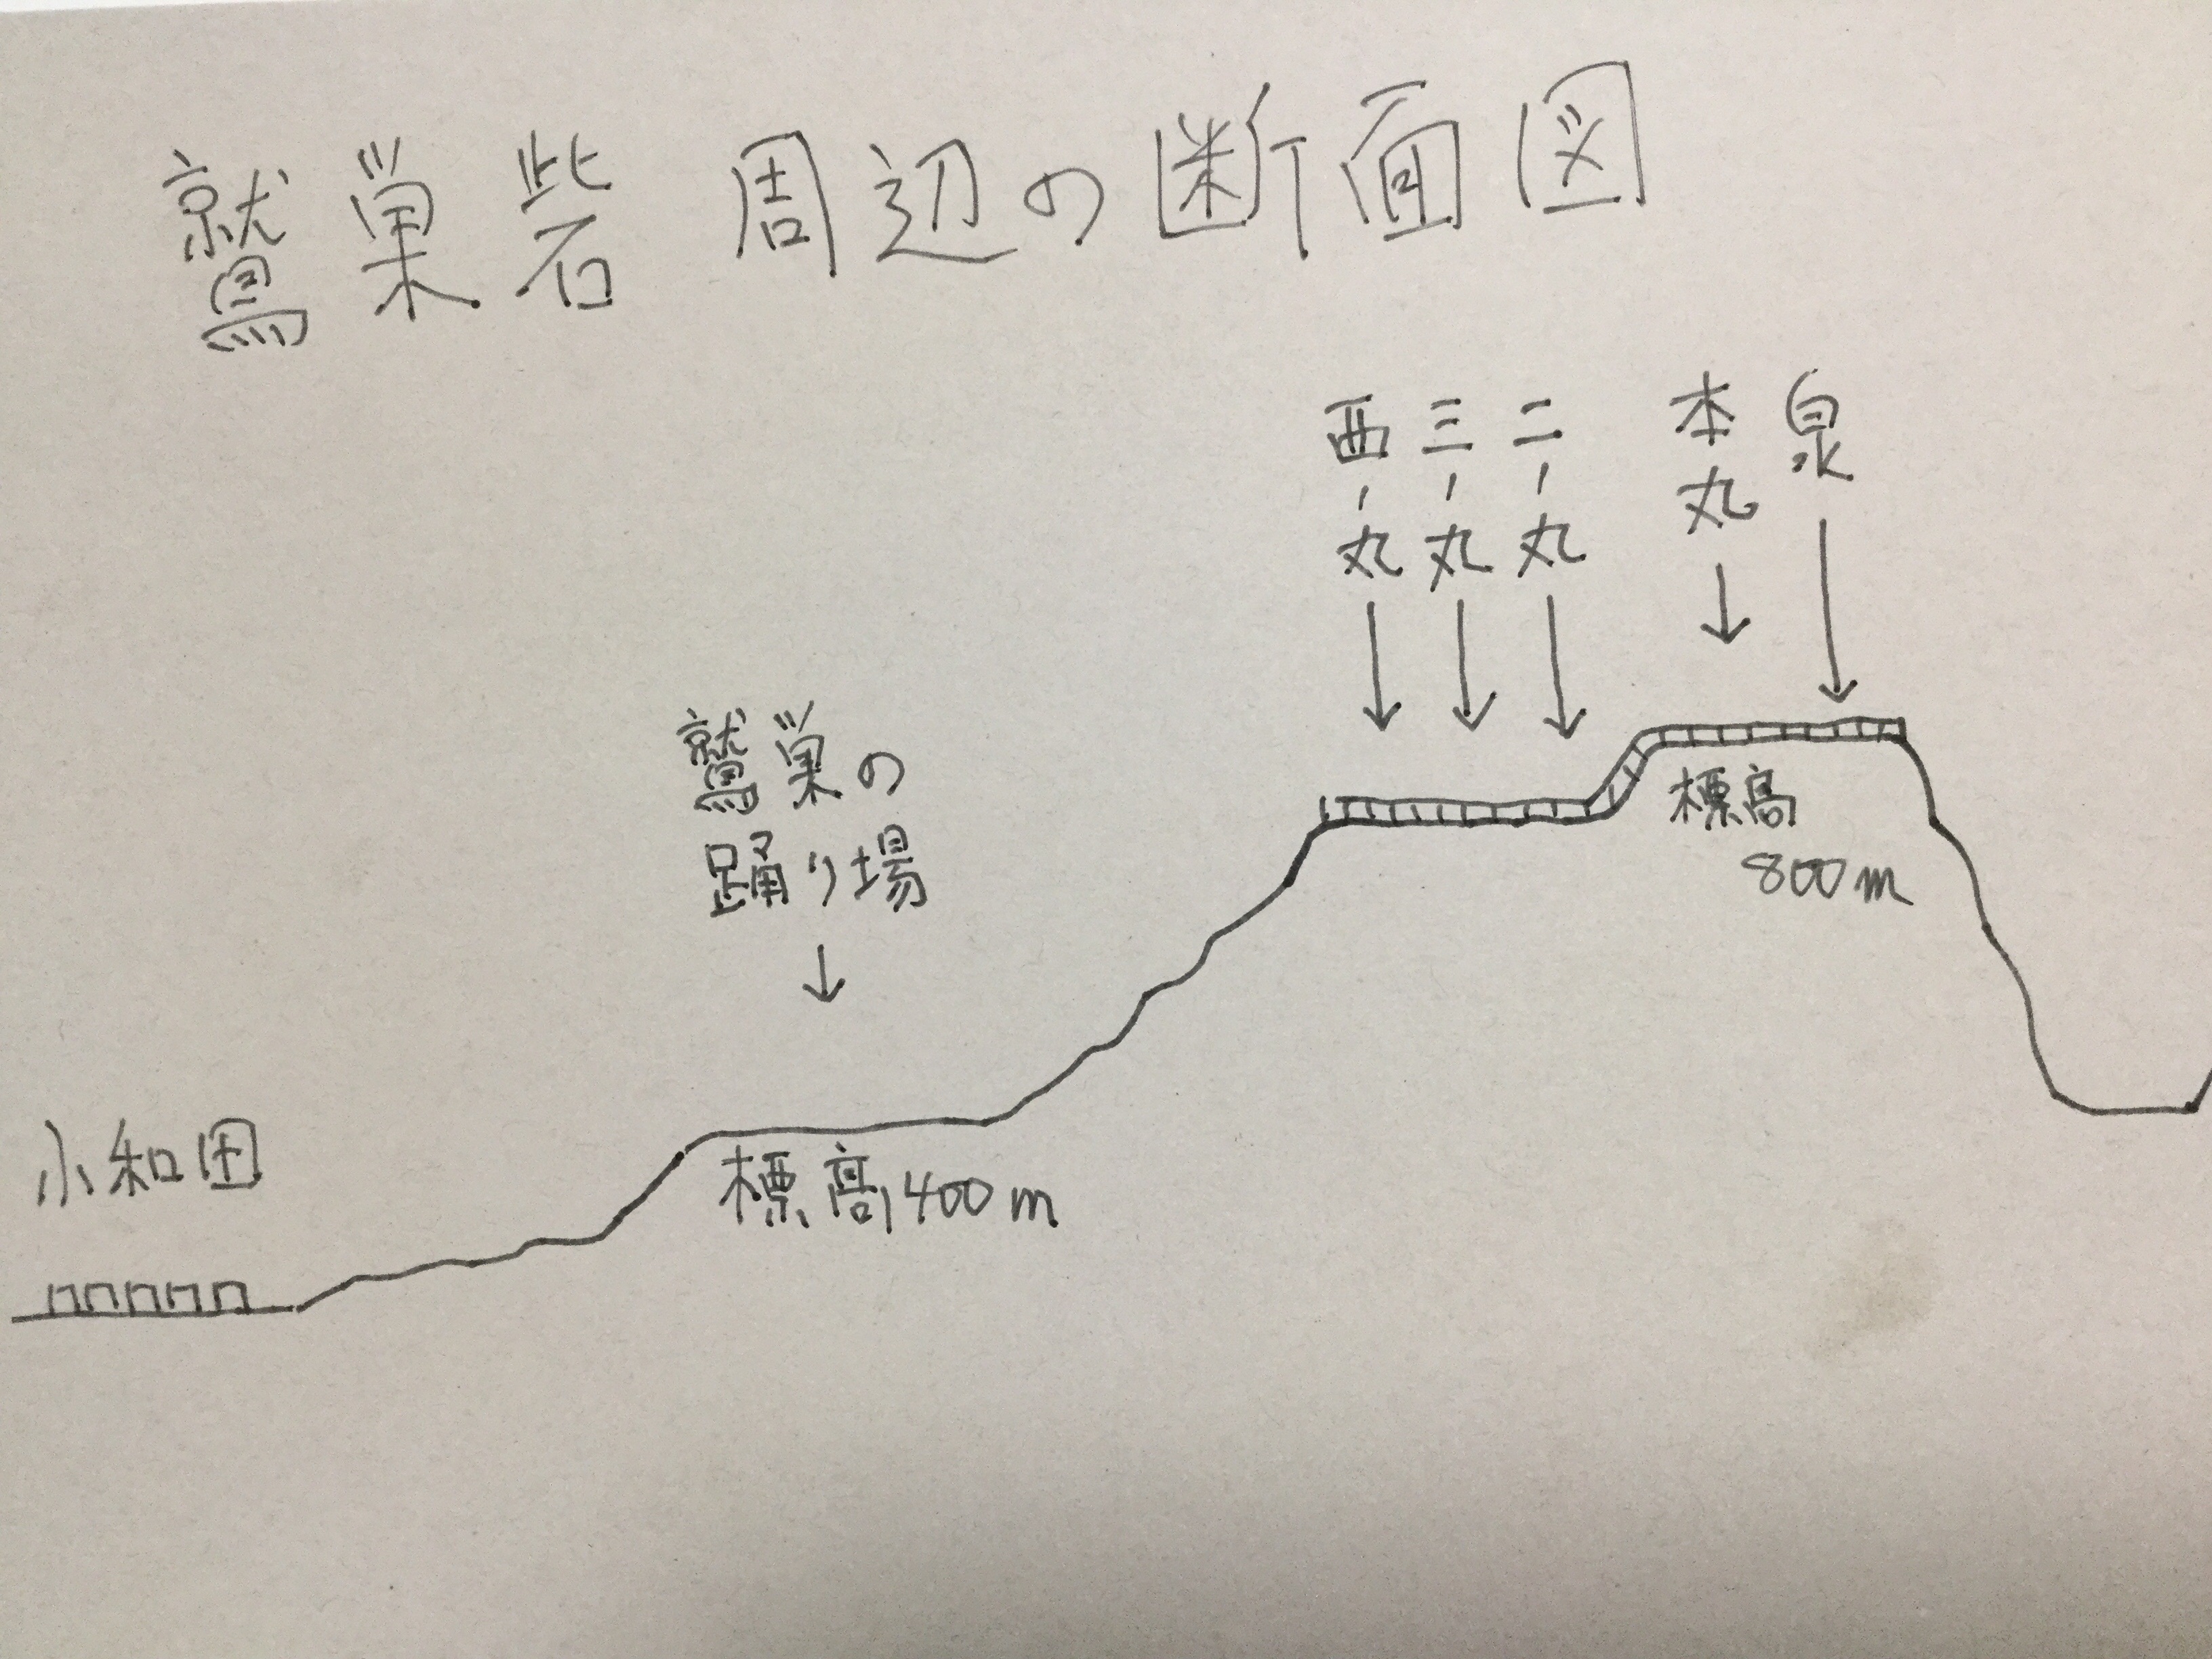 鷲巣砦 周辺の断面図
西ノ丸
三ノ丸
二ノ丸
本丸
泉
標高
800m
鷲巣の
踊り場
標高400m
小和田